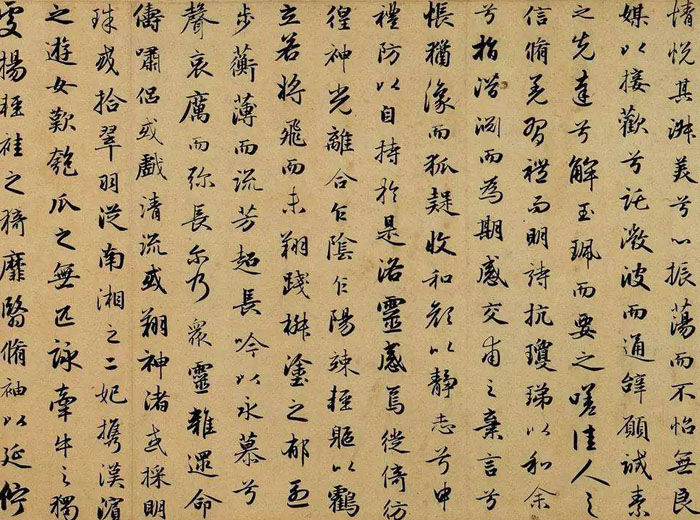 情悦其淑美兮心振蕩而不怡無良
媒以接歡兮託微波而通辭願誠素
之先達兮解玉珮而要之嗟佳人之
信脩羌習禮而明詩抗瓊珶以和余
兮指潛淵而為期感交甫之棄言兮
悵猶豫而狐疑收和顏以靜志兮申
禮防以自持於是洛靈感焉徙倚彷
徨神光離合乍陰乍陽竦軽軀以鶴
立若將飛而未翔踐椒塗之郁烈
步蘅薄而流芳超長吟以永慕兮
聲哀厲而弥長尓乃衆靈雜遝命
儔嘯侶或戲清流或翔神渚或採明
珠或拾翠羽從南湘之二妃携漢濱
之遊女歎匏瓜之無匹詠牽牛之獨
處揚軽袿之猗靡翳脩袖以延佇